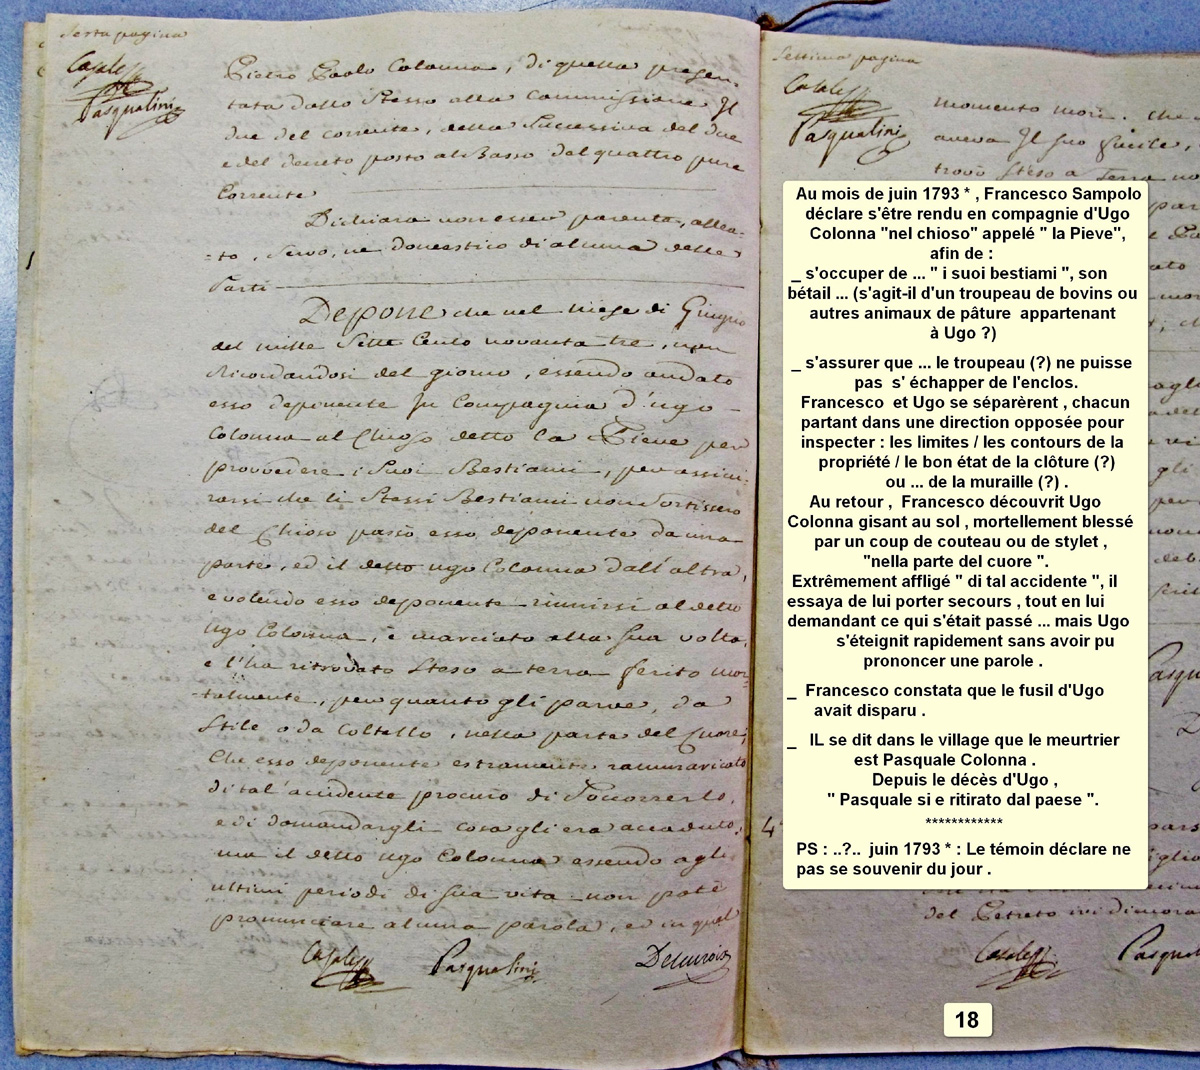 Sesta pagina
Casale
Pasqualini
Pietro Paolo Colonna, di questa presen-
tata dallo Stesso alla Commissione Il
due del corrente, della Successiva del due
e del decreto posto al Basso del quattro pure
Corrente
Dichiara non esser parente, allea-
-to, Servo, ne Domestico di alcuna delle
Parti
Depone che nel mese di Giugno
del mille Sette Cento novanta tre, non
Ricordandosi del giorno, essendo andato
esso deponente In Compagnia d'ugo
Colonna al Chioso detto la Pieve per
provvedere i Suoi Bestiami, per assicu-
rarsi che li Stessi Bestiami non Sortissero
del Chioso passò esso deponente da una
parte, ed il detto ugo Colonna dall'altra,
e volendo esso deponente riunirsi al detto
Ugo Colonna, è marciato alla Sua volta,
e l'ha ritrovato Steso a terra ferito mor-
-talmente, per quanto gli parve, da
Stile o da Coltello, nella parte del Cuore,
Che esso deponente estramente rammaricato
di tal'accidente procurò di Soccorrerlo,
e di domandargli cosa gli era accaduto,
ma il detto Ugo Colonna essendo agli
ultimi periodi di Sua vita non potè
pronunciare alcuna parola, ed in quel
Casale Pasqualini
Settima pagina
Casale
Pasqualini
momento morì. che
aveva Il Suo fucile,
trovò Steso a Terra
Au mois de juin 1793 * , Francesco Sampolo
déclare s'être rendu en compagnie d'Ugo
Colonna "nel chioso" appelé " la Pieve",
afin de :
_ s'occuper de ... " i suoi bestiami ", son
bétail ... (s'agit-il d'un troupeau de bovins ou
autres animaux de pâture appartenant
à Ugo ?)
_ s'assurer que ... le troupeau (?) ne puisse
pas s' échapper de l'enclos.
Francesco et Ugo se séparèrent , chacun
partant dans une direction opposée pour
inspecter : les limites / les contours de la
propriété / le bon état de la clôture (?)
ou ... de la muraille (?) .
Au retour , Francesco découvrit Ugo
Colonna gisant au sol , mortellement blessé
par un coup de couteau ou de stylet ,
"nella parte del cuore ".
Extrêmement affligé " di tal accidente ", il
essaya de lui porter secours , tout en lui
demandant ce qui s'était passé ... mais Ugo
s'éteignit rapidement sans avoir pu
prononcer une parole .
_ Francesco constata que le fusil d'Ugo
avait disparu .
_ IL se dit dans le village que le meurtrier
est Pasquale Colonna .
Depuis le décès d'Ugo ,
" Pasquale si e ritirato dal paese ".
************
PS : ..?.. juin 1793 * : Le témoin déclare ne
pas se souvenir du jour .
del Decreto ivi dimora
Casale Pasqual
18